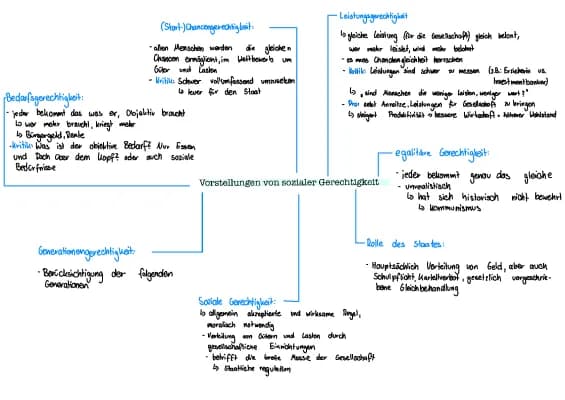 (Start-)Chancengerechtigkeit:
- allen Menschen werden die gleichen
Chancen ermöglicht, im Wettbewerb um
Güter und Lasten
- Kritik: Schwer vollumfassend umzusetzen
↳ teuer für den Staat
Leistungsgerechtigkeit
↳ gleiche Leistung (für die Gesellschaft) gleich belont,
wer mehr leistet, wird mehr belohnt
- es muss Chancengleichheit herrschen
- Kritik: Leistungen sind schwer zu messen (z.B.: Erzieherin vs.
Investmentbanker)
↳ "sind Menschen die weniger leisten, weniger wert?"
- Pro: setzt Anreize, Leistungen für Gesellschaft zu bringen
↳ steigert Produktivität → bessere Wirtschaft → höherer Wohlstand
Bedarfsgerechtigkeit:
- jeder bekommt das was er, Objektiv braucht
↳ wer mehr braucht, kriegt mehr
↳ Bürgergeld, Rente
- Kritik: Was ist der objektive Bedarf? Nur Essen
und Dach über dem Kopf? oder auch soziale
Bedürfnisse
egalitäre Gerechtigkeit:
- jeder bekommt genau das gleiche
- unrealistisch
↳ hat sich historisch nicht bewehrt
↳ Kommunismus
Vorstellungen von sozialer Gerechtigkeit
Generationengerechtigkeit:
- Berücksichtigung der folgenden
Generationen
Rolle des Staates:
- Hauptsächlich Verteilung von Geld, aber auch
Schulpflicht, Kartellverbot, gesetzlich vorgeschrie-
bene Gleichbehandlung
Soziale Gerechtigkeit:
↳ allgemein akzeptierte und wirksame Regel,
moralisch notwendig
- Verteilung von Gütern und Lasten durch
gesellschaftliche Einrichtungen
- betrifft die breite Masse der Gesellschaft
↳ Staatliche regulation